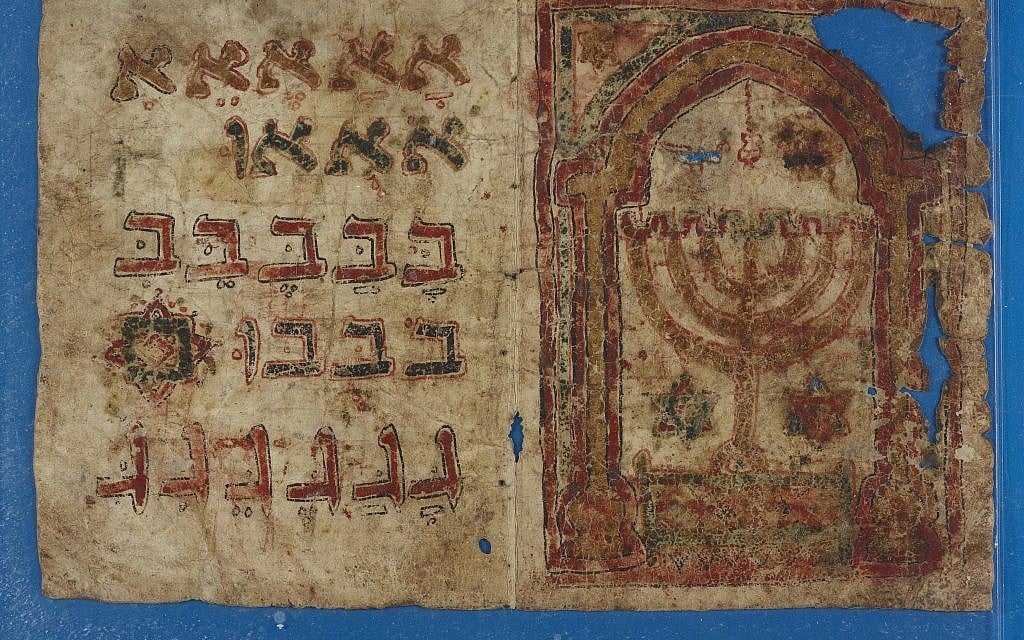 אָ אַ אֶ אֵ אְ
אֹ אִ אוּ
בָּ בַּ בֶּ בֵּ בְּ
בֹּ בִּ בּוּ
גָ גַ גֶ גֵ גְ ג